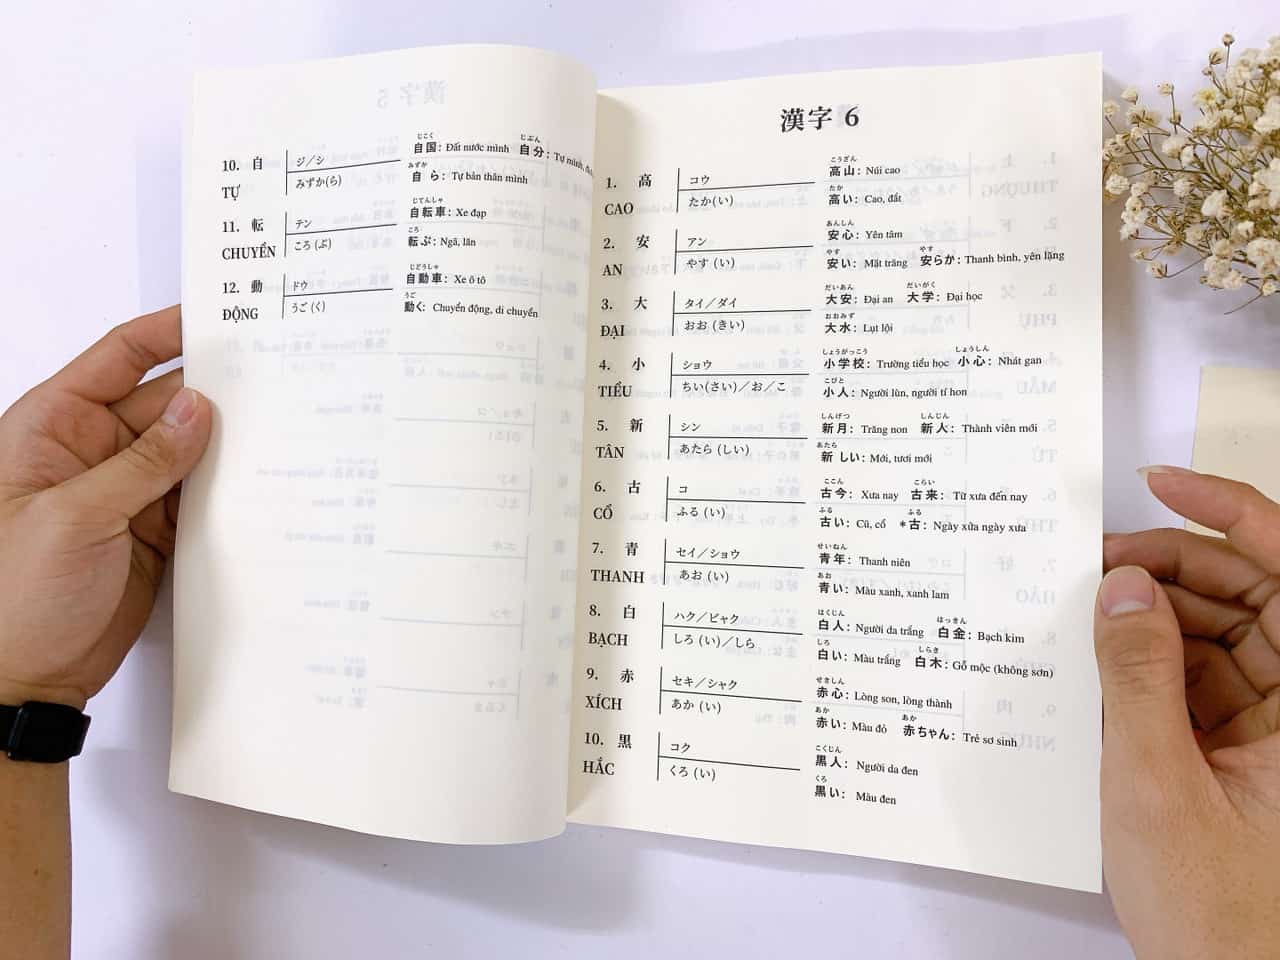 10. 自 ジ／シ
じこく じぶん
自国: Đất nước mình 自分: Tự mình,
TỰ みずか(ら)
みずか
自ら: Tự bản thân mình
11. 転 テン
じてんしゃ
自転車: Xe đạp
CHUYỂN ころ (ぶ)
ころ
転ぶ: Ngã, lăn
12. 動 ドウ
じどうしゃ
自動車: Xe ô tô
ĐỘNG うご (く)
うご
動く: Chuyển động, di chuyển
漢字 6
1. 高 コウ
こうざん
高山: Núi cao
CAO たか(い)
たか
高い: Cao, đắt
2. 安 アン
あんしん
安心: Yên tâm
AN やす (い)
やす やす
安い: Mặt trăng 安らか: Thanh bình, yên lặng
3. 大 タイ／ダイ
だいあん だいがく
大安: Đại an 大学: Đại học
ĐẠI おお (きい)
おおみず
大水: Lụt lội
4. 小 ショウ
しょうがっこう しょうしん
小学校: Trường tiểu học 小心: Nhát gan
TIỂU ちい(さい)／お／こ
こびと
小人: Người lùn, người tí hon
5. 新 シン
しんげつ しんじん
新月: Trăng non 新人: Thành viên mới
TÂN あたら (しい)
あたら
新しい: Mới, tươi mới
6. 古 コ
ここん こらい
古今: Xưa nay 古来: Từ xưa đến nay
CỔ ふる (い)
ふる ふる
古い: Cũ, cổ *古: Ngày xửa ngày xưa
7. 青 セイ／ショウ
せいねん
青年: Thanh niên
THANH あお (い)
あお
青い: Màu xanh, xanh lam
8. 白 ハク／ビャク
はくじん はっきん
白人: Người da trắng 白金: Bạch kim
BẠCH しろ (い)／しら
しろ しらき
白い: Màu trắng 白木: Gỗ mộc (không sơn)
9. 赤 セキ／シャク
せきしん
赤心: Lòng son, lòng thành
XÍCH あか (い)
あか あか
赤い: Màu đỏ 赤ちゃん: Trẻ sơ sinh
10. 黒 コク
こくじん
黒人: Người da đen
HẮC くろ (い)
くろ
黒い: Màu đen